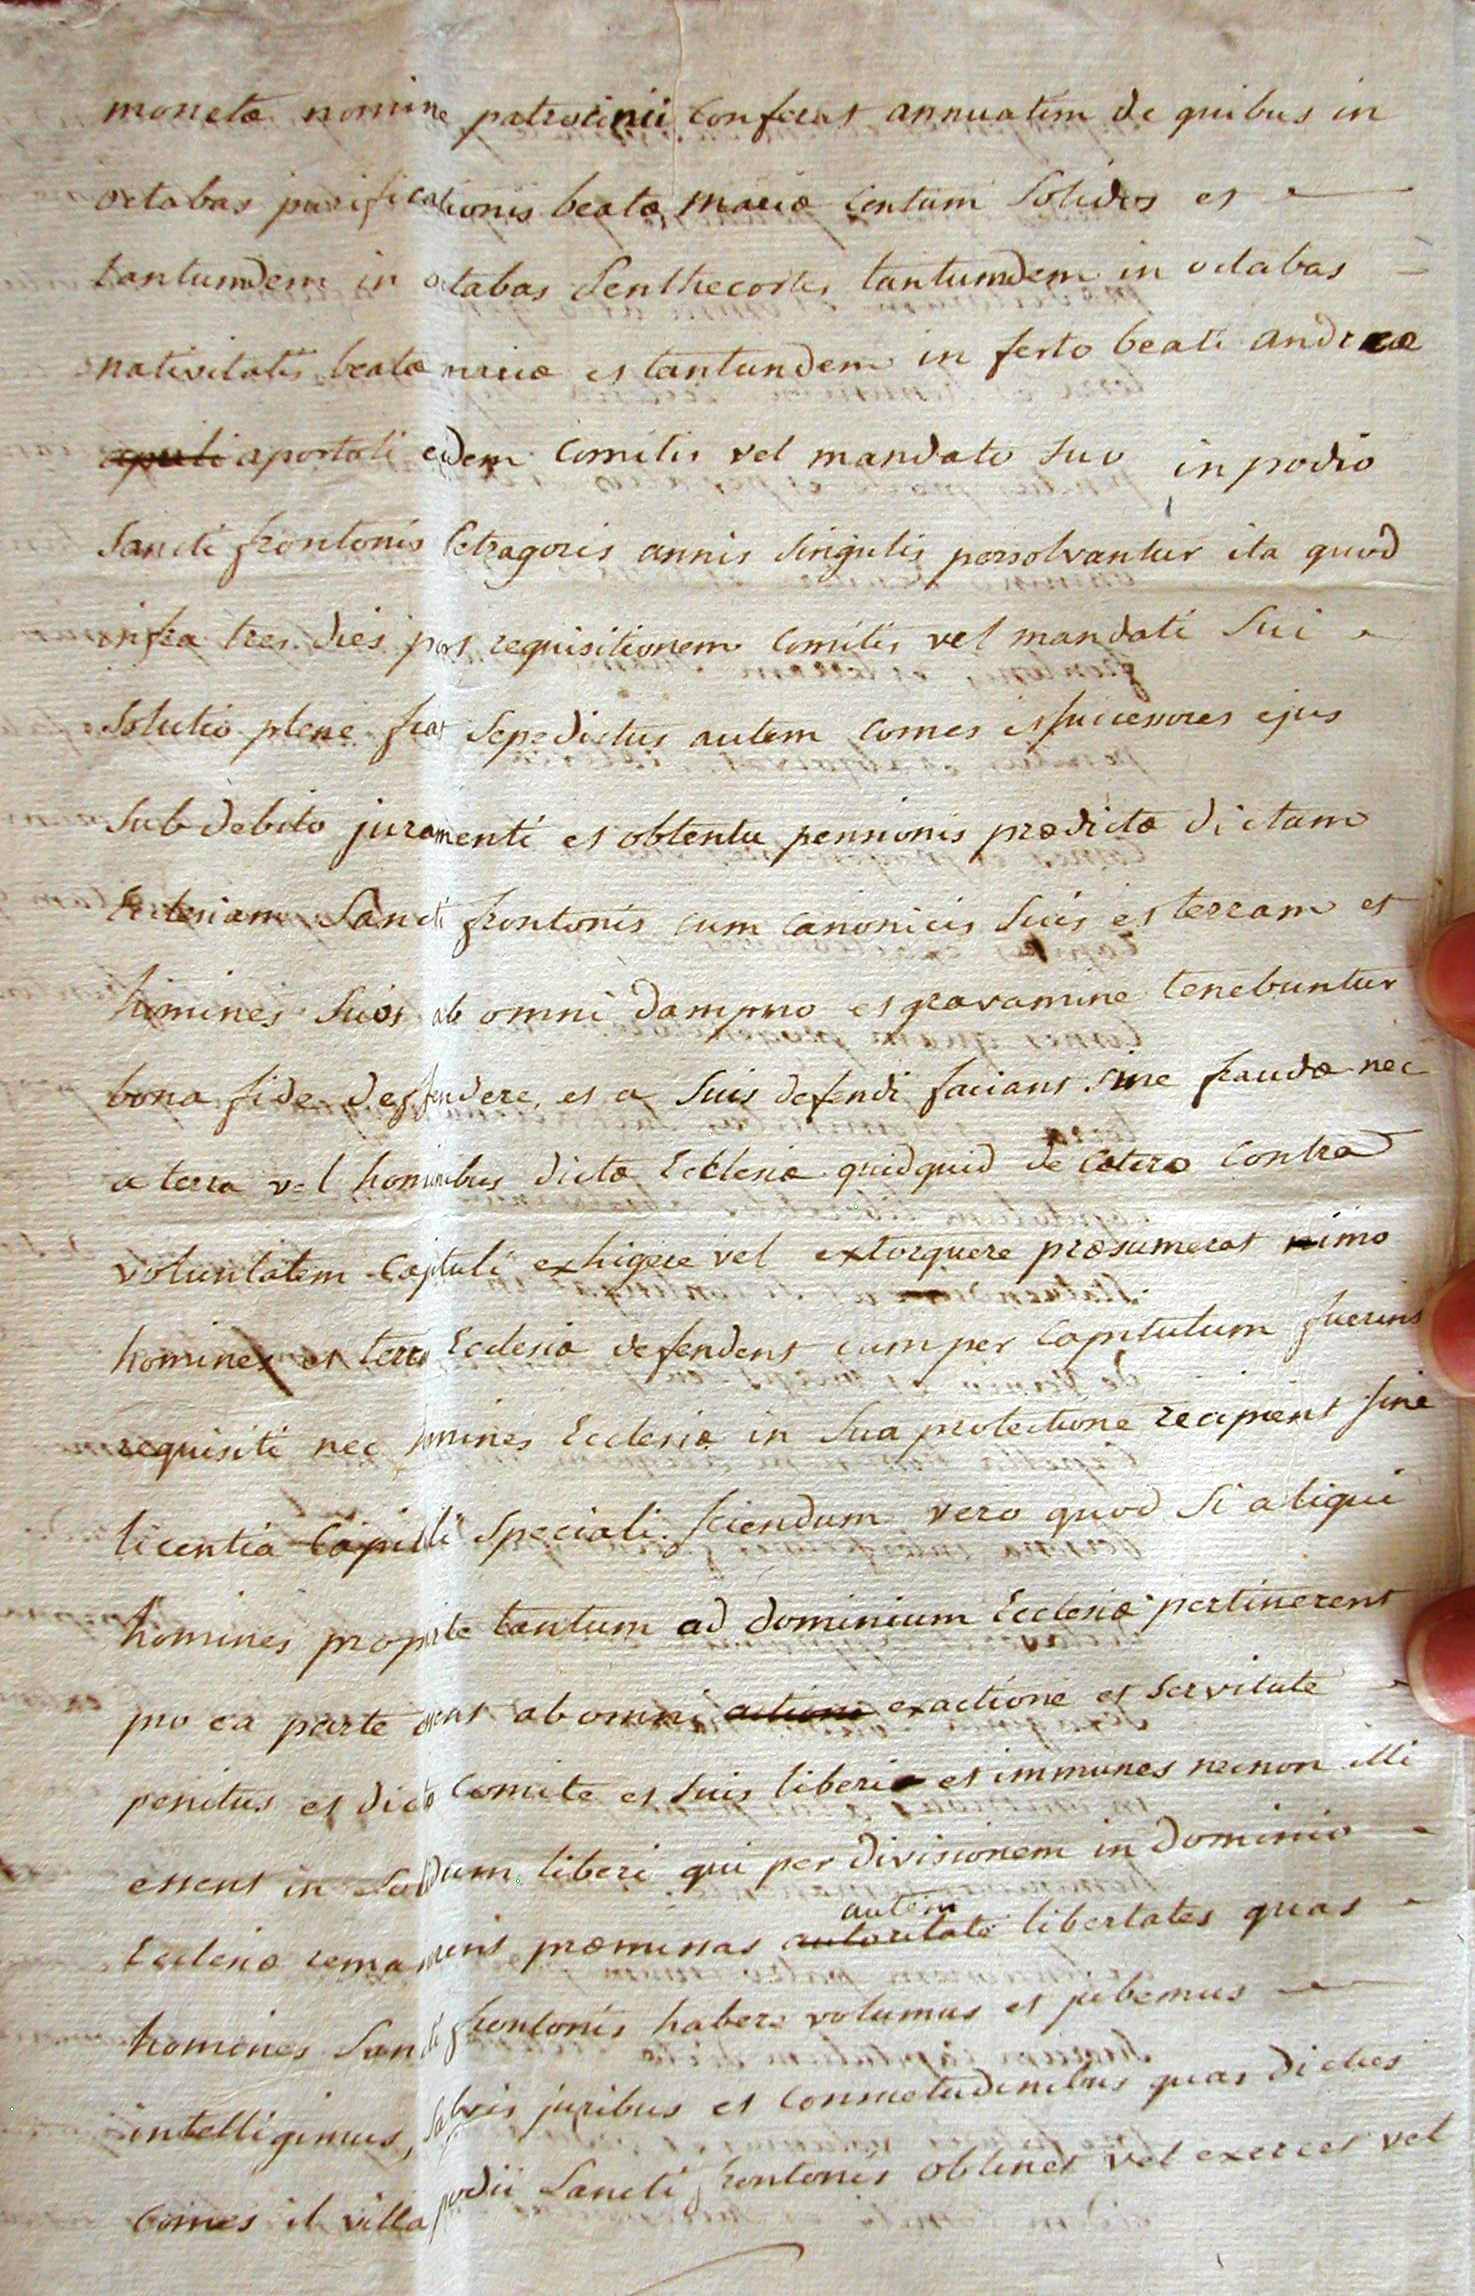 monetæ nomine patrocinii conferat annuatim de quibus in
octabas purificationis beatæ mariæ centum solidos et
tantumdem in octabas Penthecostes tantumdem in octabas
nativitatis beatæ mariæ et tantundem in festo beati andreæ
apostoli eidem comitis vel mandato suo in podio
Sancti frontonis Petragoris annis singulis persolvantur ita quod
infra tres dies post requisitionem comitis vel mandati sui
solutio plene fiat sepedictus autem comes et successores ejus
sub debito juramenti et obtentu pensionis prædictæ dictam
Ecclesiam Sancti frontonis cum canonicis suis et terram et
homines suos ab omni dampno et gravamine tenebuntur
bona fide deffendere, et a suis defendi faciant sine fraudæ nec
a terra vel hominibus dictæ Ecclesiæ quidquid de cætero contra
voluntatem capituli exhigere vel extorquere præsumerat imo
homines et terra Ecclesiæ defendent cum per capitulum fuerint
requisiti nec homines Ecclesiæ in sua protectione recipient sine
licentia capituli speciali. sciendum vero quod si aliqui
homines pro parte tantum ad dominium Ecclesiæ pertinerent
pro ea parte essent ab omni actione exactione et servitute
penitus et dicto comite et suis liberi et immunes necnon illi
essent in solidum liberi qui per divisionem in dominio
Ecclesiæ remanerent præmissas autem libertates quas
homines Sancti frontonis habere volumus et jubemus
intelligimus, salvis juribus et consuetudinibus quas dictus
comes il villa podii Sancti frontonis obtinet vel exercet vel